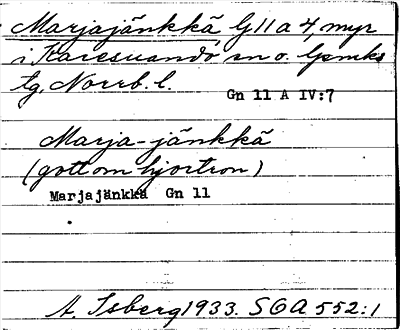 Marjajänkkä G 11 a 4, myr
i Karesuando sn o. lpmks
tg, Norrb. l.
Gn 11 A IV:7
Marja-jänkkä
(gott om hjortron)
Marjajänkkä Gn 11
A. Isberg 1933. SOA 552:1